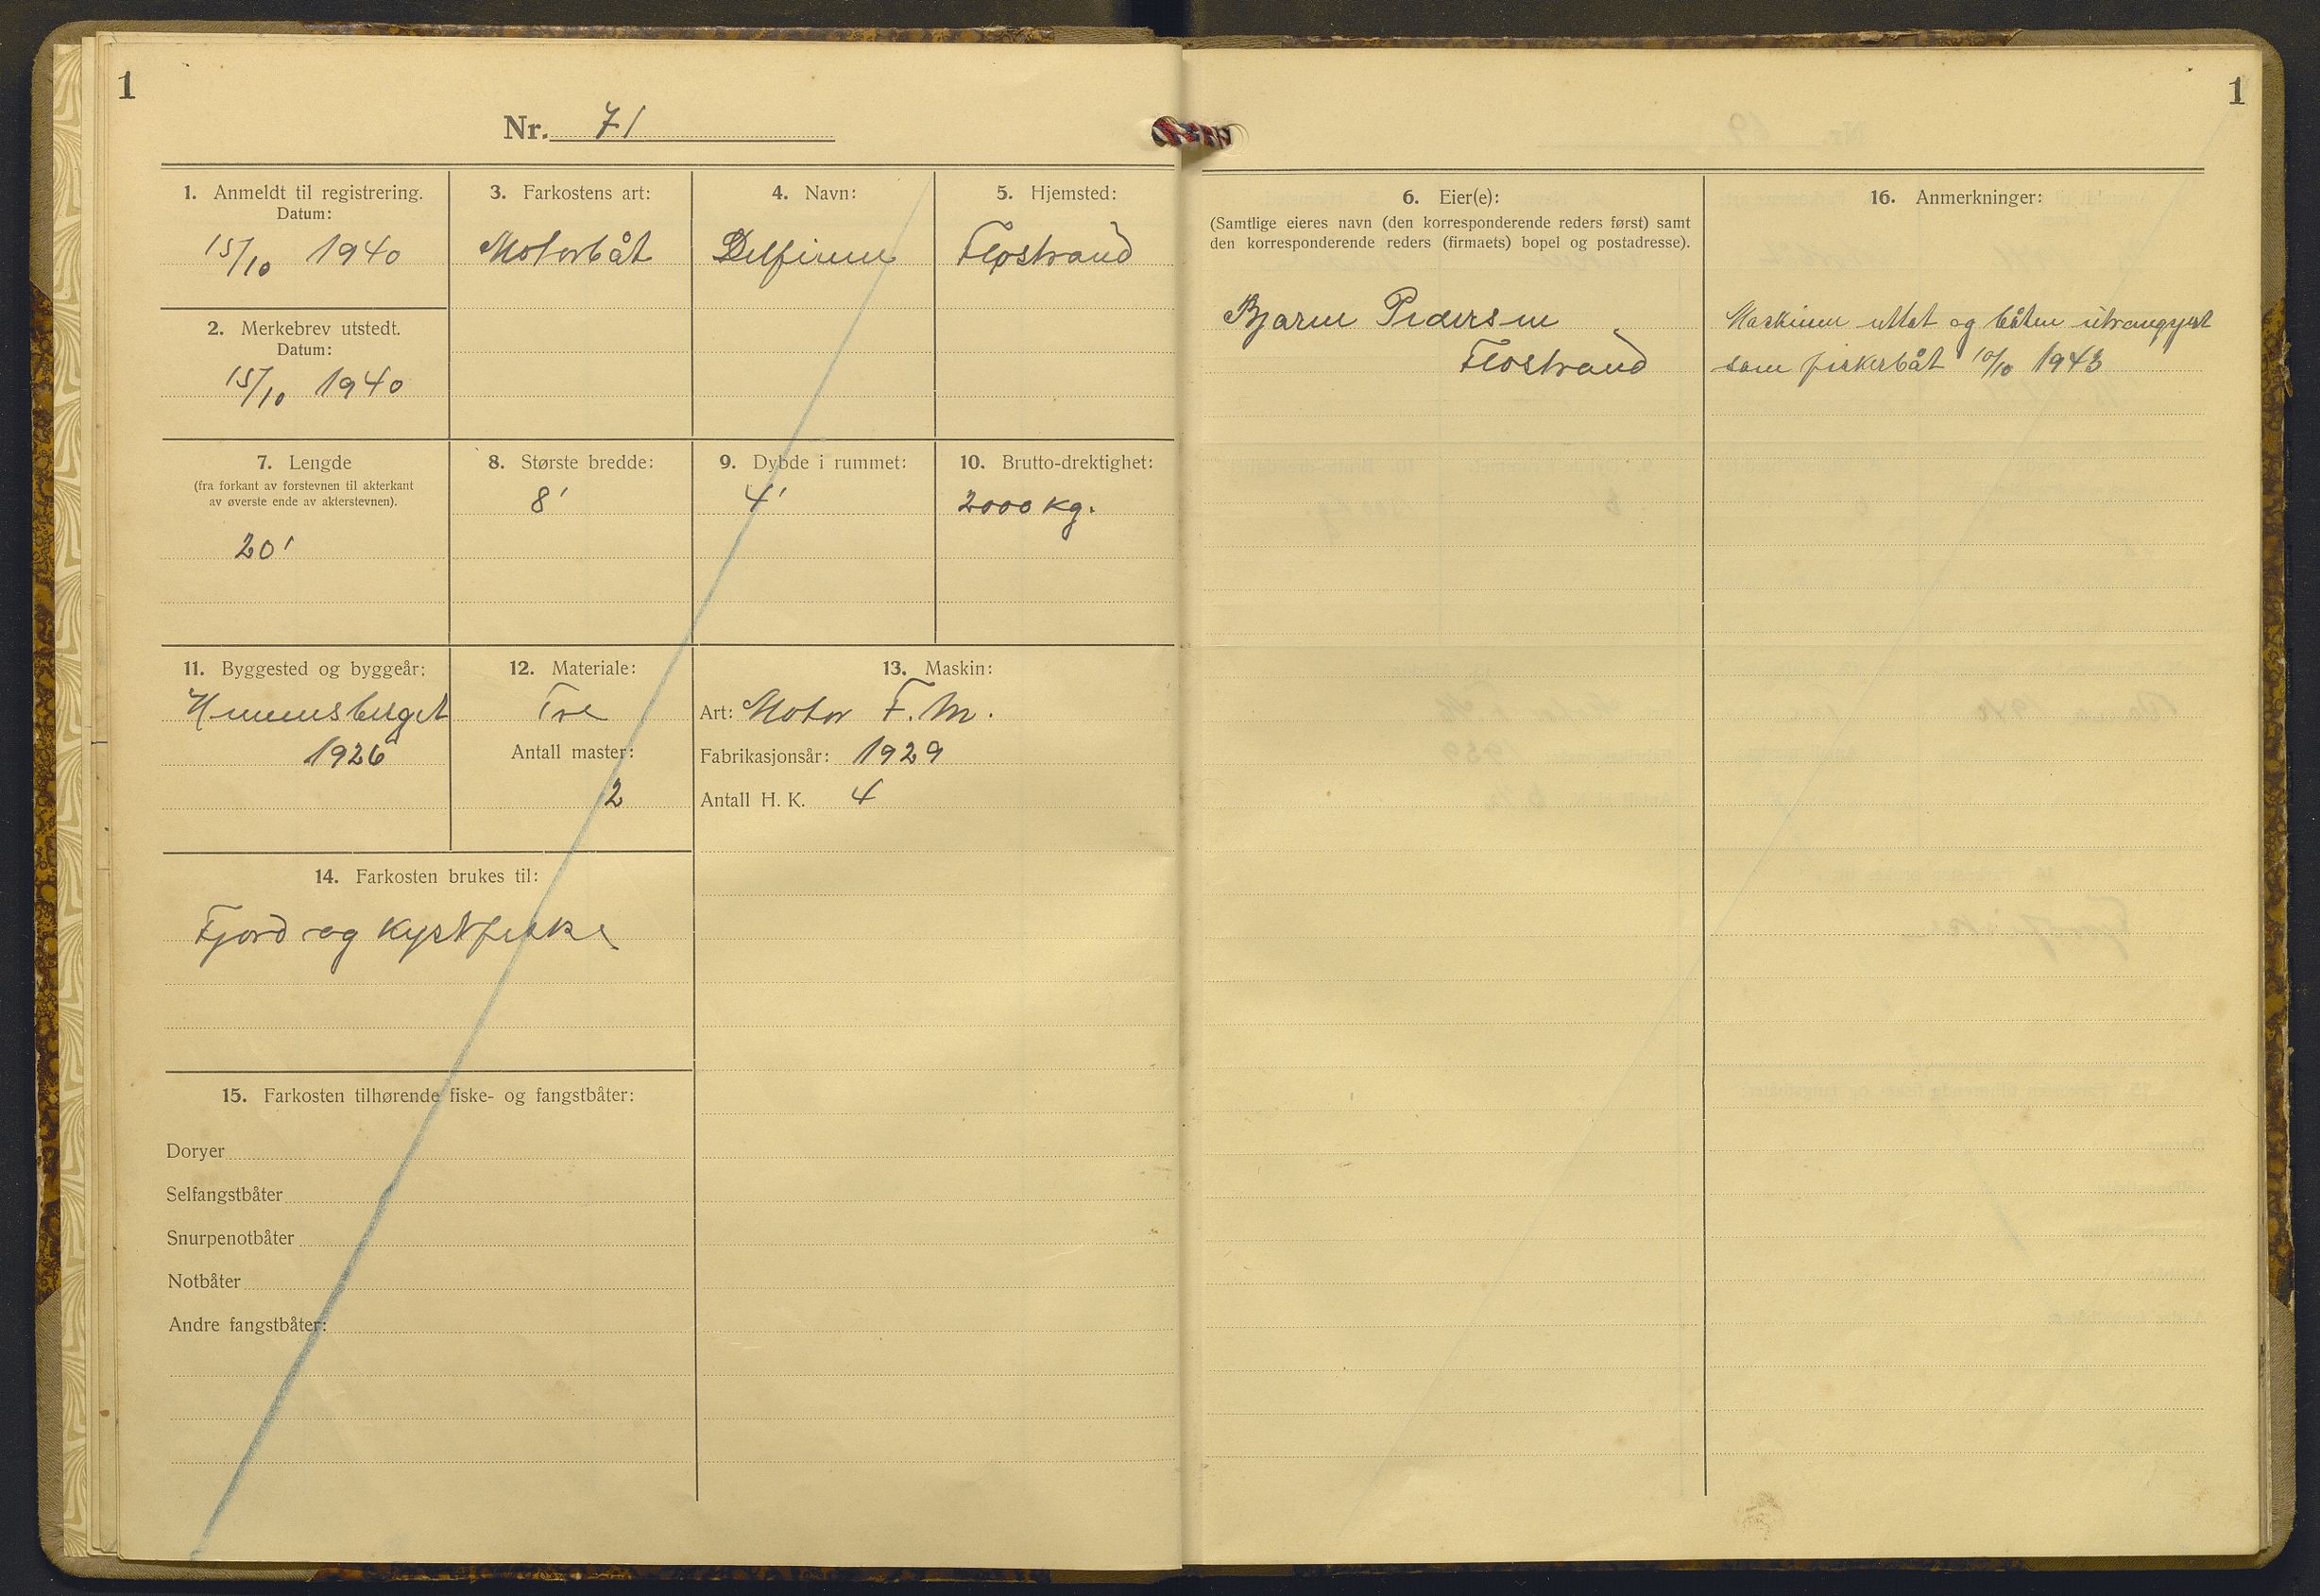 1
Nr. 71
1. Anmeldt til registrering.
Datum:
15/10 1940
2. Merkebrev utstedt.
Datum:
15/10 1940
3. Farkostens art:
Motorbåt
4. Navn:
Delfinen
5. Hjemsted:
Flostrand
7. Lengde
(fra forkant av forstevnen til akterkant
av øverste ende av akterstevnen).
20'
8. Største bredde:
8'
9. Dybde i rummet:
4'
10. Brutto-drektighet:
2000 kg.
11. Byggested og byggeår:
Hemnesberget
1926
12. Materiale:
Tre
Antall master:
2
13. Maskin:
Art: Motor F. M.
Fabrikasjonsår: 1929
Antall H. K. 4
14. Farkosten brukes til:
Fjord og Kystfiske
15. Farkosten tilhørende fiske- og fangstbåter:
Doryer
Selfangstbåter
Snurpenotbåter
Notbåter
Andre fangstbåter:
1
6. Eier(e):
(Samtlige eieres navn (den korresponderende reders først) samt
den korresponderende reders (firmaets) bopel og postadresse).
Bjarne Pedersen
Flostrand
16. Anmerkninger:
Maskinen uttat og båten utranggert
som fiskerbåt 10/10 1943